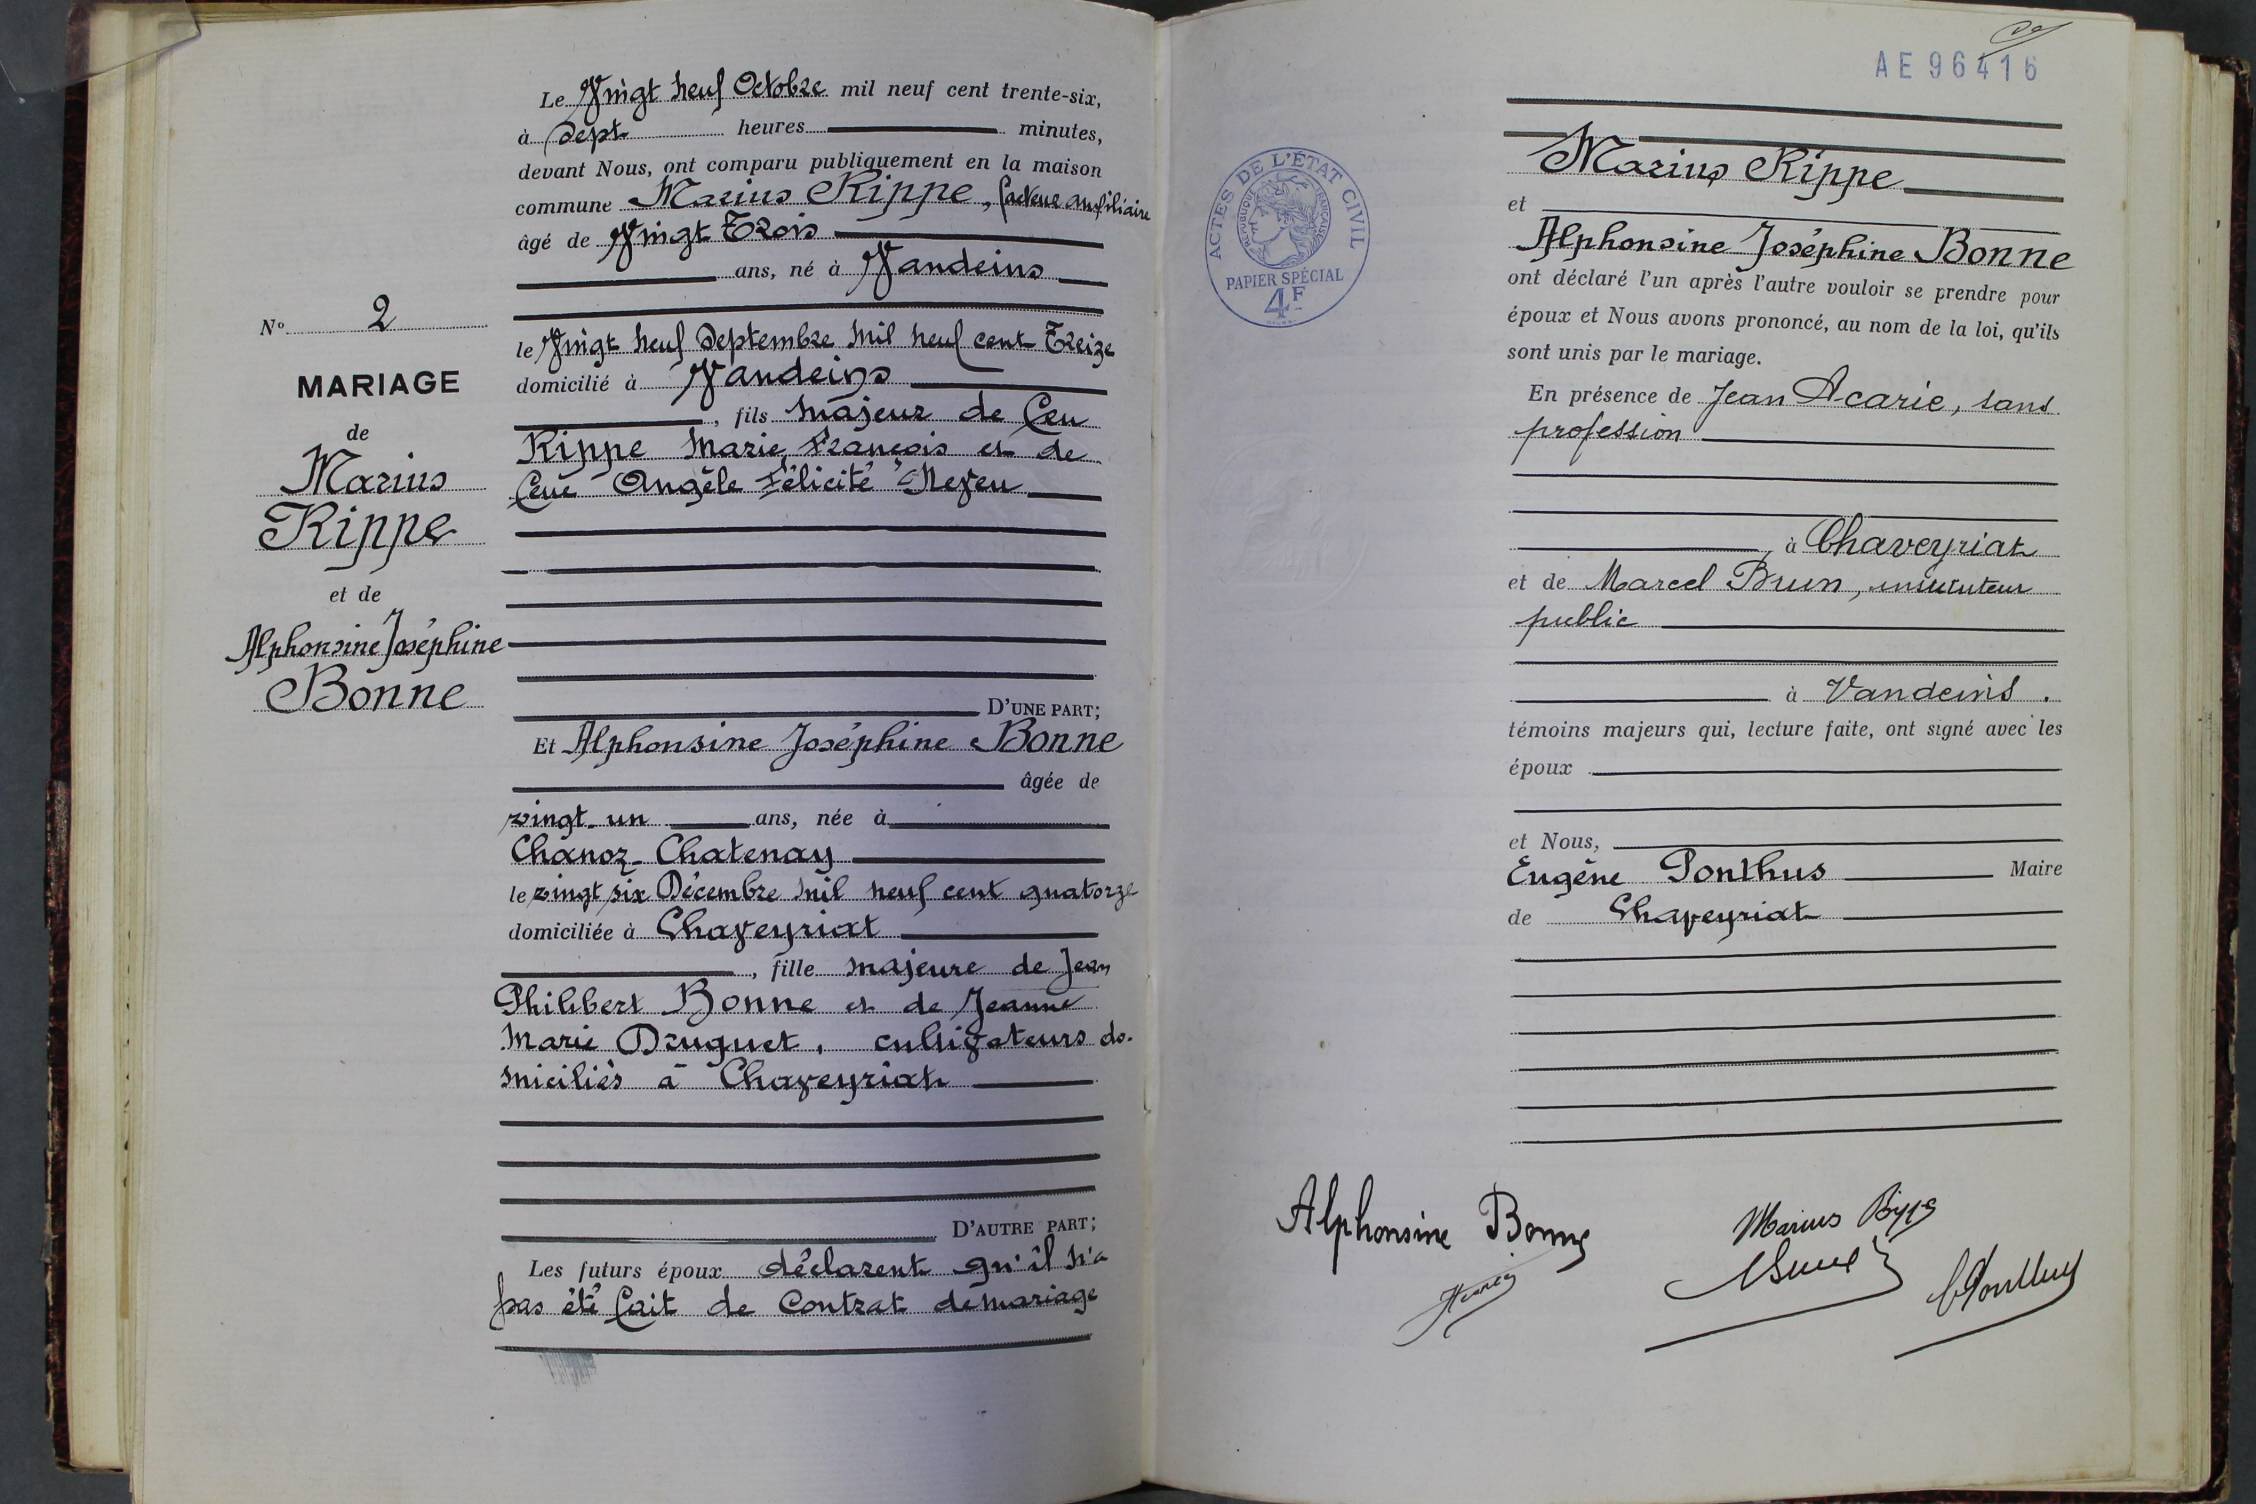 N° 2
MARIAGE
de
Marius
Rippe
et de
Alphonsine Joséphine
Bonne
Le Vingt neuf Octobre mil neuf cent trente-six,
à Sept heures minutes,
devant Nous, ont comparu publiquement en la maison
commune Marius Rippe, facteur auxiliaire
âgé de Vingt Trois
ans, né à Vandeins
le Vingt neuf Septembre mil neuf cent Treize
domicilié à Vandeins
, fils majeur de feu
Rippe Marie, François et de
feue Angèle Félicité Neveu
D'UNE PART;
Et Alphonsine Joséphine Bonne
âgée de
vingt-un ans, née à
Chanoz-Chatenay
le vingt six Décembre mil neuf cent quatorze
domiciliée à Chaveyriat
, fille majeure de Jean
Philibert Bonne et de Jeanne
Marie Druguet, cultivateurs do-
miciliés à Chaveyriat
D'AUTRE PART;
Les futurs époux déclarent qu'il n'a
pas été fait de contrat de mariage
AE 96416
Marius Rippe
et
Alphonsine Joséphine Bonne
ont déclaré l'un après l'autre vouloir se prendre pour
époux et Nous avons prononcé, au nom de la loi, qu'ils
sont unis par le mariage.
En présence de Jean Acarie, sans
profession
, à Chaveyriat
et de Marcel Brun, instituteur
public
à Vandeins.
témoins majeurs qui, lecture faite, ont signé avec les
époux
et Nous,
Eugène Ponthus Maire
de Chaveyriat
ACTES DE L'ÉTAT CIVIL
RÉPUBLIQUE FRANÇAISE
PAPIER SPÉCIAL
4F
Alphonsine Bonne
Marius Rippe